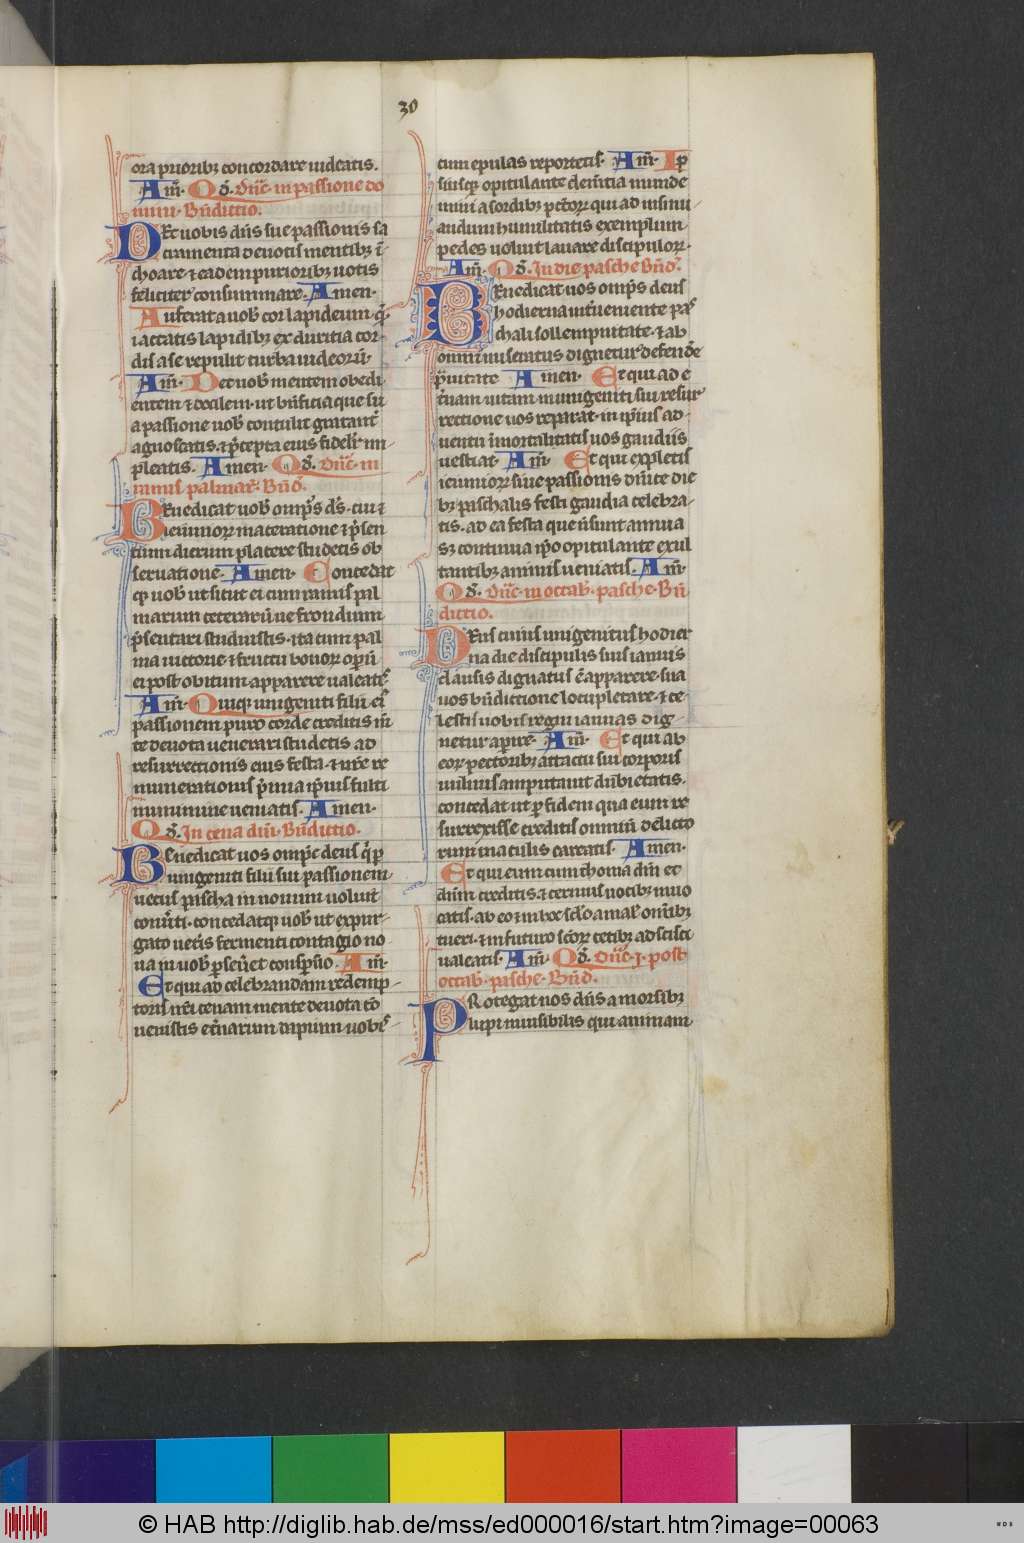 30
ora prioribꝫ concordare uideatis.
Am̄. Qd̓. Dn̄ic̄ in passione do
mini. Bn̄dictio.
DEt uobis dn̄s sue passionis sa
cramenta deuotis mentibꝫ ī
choare ⁊ eadem purioribꝫ uotis
feliciter consummare. Amen.
Auferat a uob̓ cor lapideum q̓
iactatis lapidibꝫ ex duritia cor
dis a se repulit turba iudeorū.
Am̄. Det uob̓ mentem obedi
entem ⁊ docilem. ut bn̄ficia que su
a passione uob̓ contulit gratant̓
agnoscatis. ⁊ p̄cepta eius fidelit̓ im
pleatis. Amen. Qd̓. Dn̄ic̄ in
ramis palmar̓. Bn̄d̓.
BEnedicat uob̓ omp̄s ds̄. cui ⁊
ieiuniorꝝ maceratione ⁊ p̄sen
tium dierum placere studetis ob
seruatione. Amen. Concedat
qꝫ uob̓ ut sicut ei cum ramis pal
marum ceterarūue frondium
p̄sentari studuistis. ita cum pal
ma uictorie ⁊ fructu bonorꝝ operū
ei post obitum apparere ualeatˢ
Am̄. Quiqꝫ unigeniti filii ei̓
passionem puro corde creditis m̄
te deuota uenerari studetis ad
resurrectionis eius festa. ⁊ ur̄e re
munerationis p̄mia ip̄ius fulti
munimine ueniatis. Amen.
Qd̓. In cena dn̄i. Bn̄dictio.
BEnedicat uos omp̄s deus q̓ ꝑ
unigeniti filii sui passionem
uetus pascha in nouum uoluit
conu̓ti. concedatqꝫ uob̓ ut expur
gato uet̓is fermenti contagio no
ua in uob̓ perseu̓et conspersio. Am̄.
Et qui ad celebrandam redemp
toris nr̄i cenam mente deuota cō
uenistis et̓narum dapium uobisˢ
cum epulas reportetis. Am̄. Ip
siusqꝫ opitulante clem̄tia munde
mini a sordibꝫ pctōrꝝ qui ad insinu
andum humilitatis exemplum
pedes uoluit lauare discipulorꝝ.
Am̄. Qd̓. In die pasche Bn̄d̓.
BEnedicat uos omp̄s deus
hodierna int̓ueniente pas
chali sollempnitate. ⁊ ab
omni miseratus dignetur defend̓e
p̄uitate Amen. Et qui ad e
t̓nam uitam unigeniti sui resur
rectione uos reparat. in ip̄ius ad
uentu īmortalitatis uos gaudiis
uestiat. Am̄. Et qui expletis
ieiuniorꝝ siue passionis dn̄ice die
bꝫ paschalis festi gaudia celebra
tis. ad ea festa que n̄ sunt annua
sꝫ continua ip̄o opitulante exul
tantibꝫ animis ueniatis. Am̄.
Qd̓. Dn̄ic̄ in octab̓. pasche. Bn̄
dictio.
DEus cuius unigenitus hodier
na die discipulis suis ianuis
clausis dignatus ē apparere. sua
uos bn̄dictione locupletare. ⁊ ce
lestis uobis regni iannas dig
netur aperire. Am̄. Et qui ab
eorꝝ pectoribꝫ attactu sui corporis
uulnus amputauit dubietatis.
concedat ut ꝑ fidem qua eum re
surrexisse creditis omniū delicto
rum maculis careatis. Amen.
Et qui eum cum thoma dm̄ et
dn̄m creditis. ⁊ cernuis uocibꝫ inuo
catis. ab eo ⁊ in hoc sc̄lo a malˢ omībꝫ
tueri. ⁊ in futuro sc̄orꝝ cetibꝫ adscisci
ualeatis. Am̄. Qd̓. Dn̄ic̄. j. post
octab̓. pasche. Bn̄d̓.
PRotegat uos dn̄s a morsibꝫ
lupi inuisibilis qui animam
© HAB http://diglib.hab.de/mss/ed000016/start.htm?image=00063